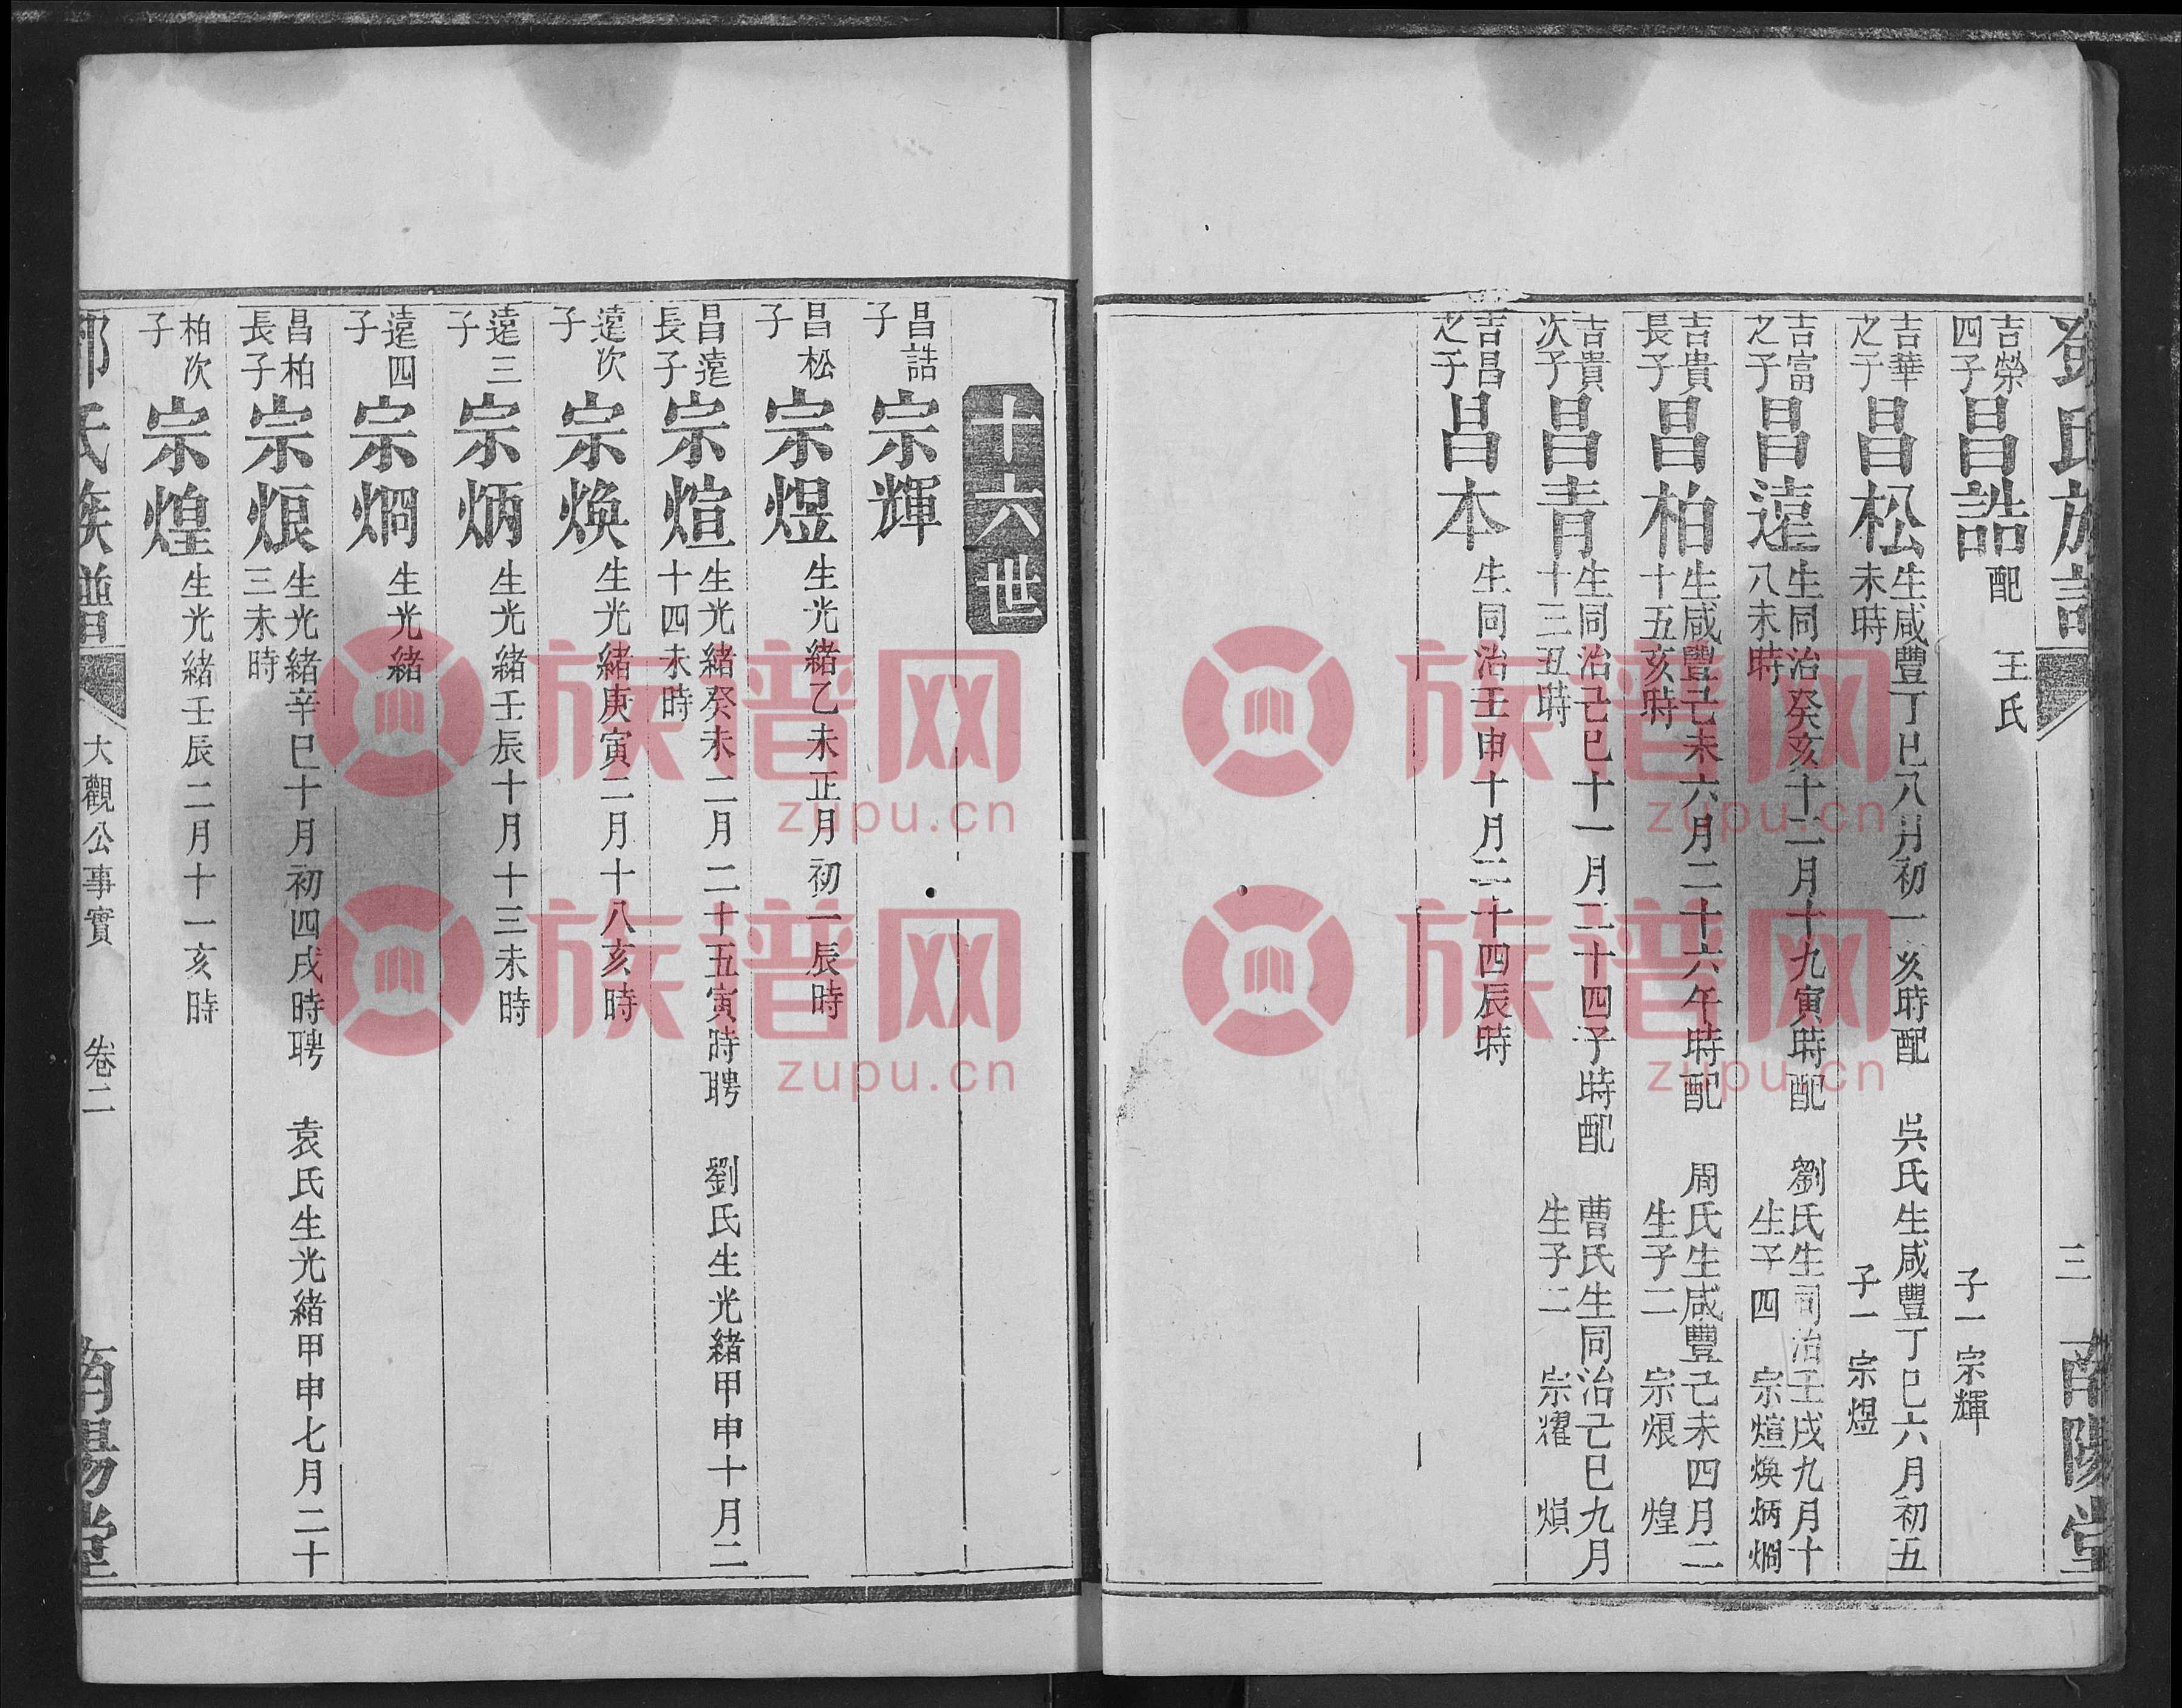 鄧氏族譜
三
南陽堂
吉榮四子
昌誥
配 王氏
子一 宗輝
吉華之子
昌松
生咸豐丁巳八月初一亥時配 吳氏生咸豐丁巳六月初五
未時
子一 宗煜
吉富之子
昌遠
生同治癸亥十二月十九寅時配 劉氏生同治壬戌九月十
八未時
生子四 宗煊煥炳燗
吉貴長子
昌柏
生咸豐己未六月二十六午時配 周氏生咸豐己未四月二
十五亥時
生子二 宗烺 煌
吉貴次子
昌青
生同治己巳十一月二十四子時配 曹氏生同治己巳九月
十三丑時
生子二 宗燿 熉
吉昌之子
昌本
生同治壬申十月二十四辰時
十六世
昌誥子
宗輝
昌松子
宗煜
生光緒乙未正月初一辰時
昌遠長子
宗煊
生光緒癸未二月二十五寅時聘 劉氏生光緒甲申十月二
十四未時
遠次子
宗煥
生光緒庚寅二月十八亥時
遠三子
宗炳
生光緒壬辰十月十三未時
遠四子
宗燗
生光緒
昌柏長子
宗烺
生光緒辛巳十月初四戌時聘 袁氏生光緒甲申七月二十
三未時
柏次子
宗煌
生光緒壬辰二月十一亥時
鄧氏族譜
大觀公事實
卷二
南陽堂
族谱网
zupu.cn
族谱网
zupu.cn
族谱网
zupu.cn
族谱网
zupu.cn